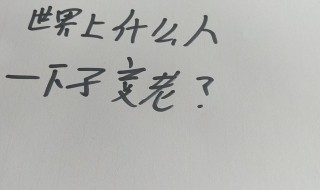 世界上什么人
一下子变老？